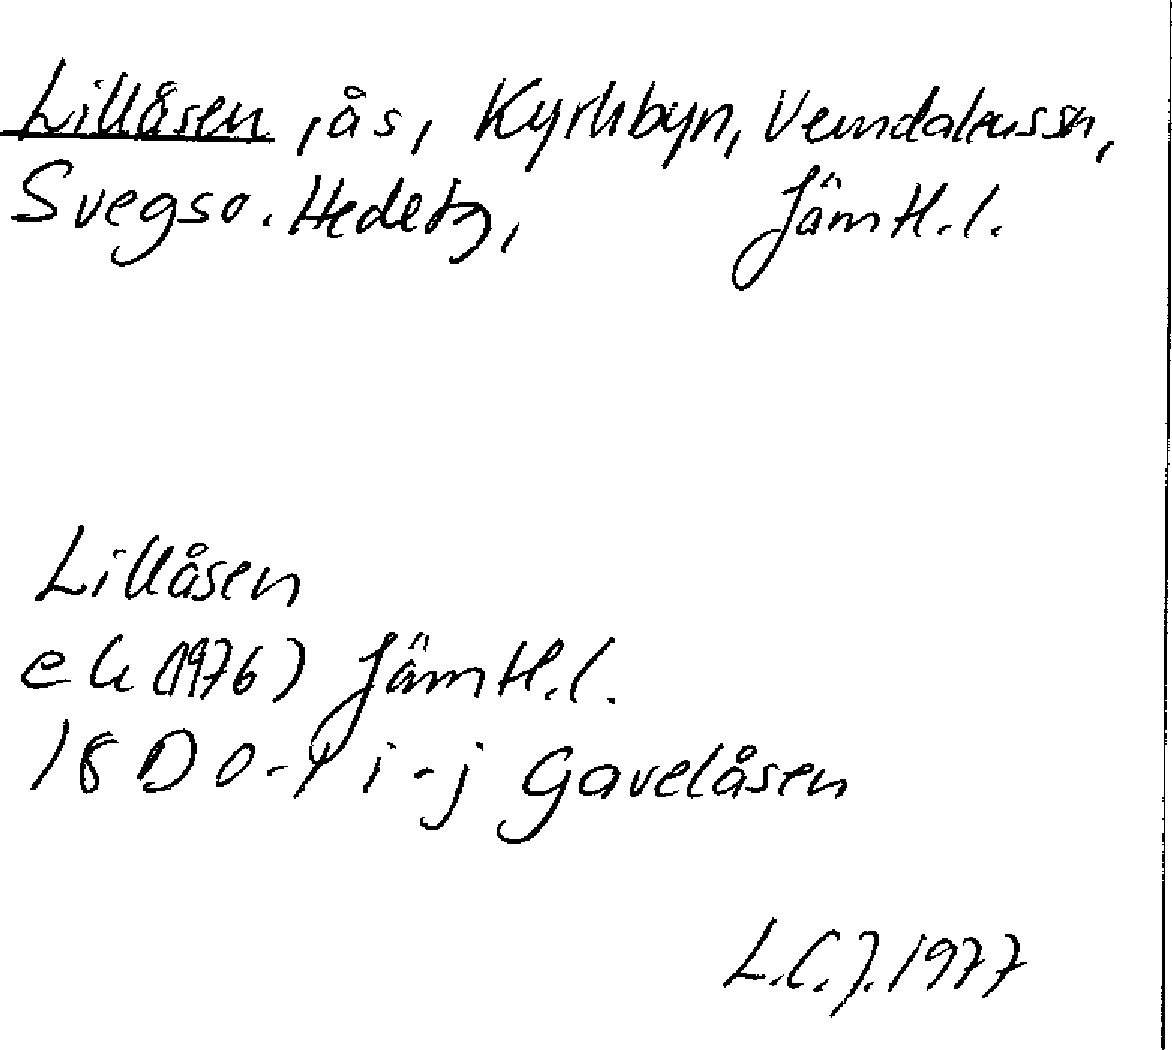 Lillåsen, ås, Kyrkbyn, Vemdalens sn,
Svegs to. Hede tg, Jämtl. l.
Lillåsen
ek (1976) Jämtl. l.
18 D 0-1 i-j Gavelåsen
L.C.J. 1977